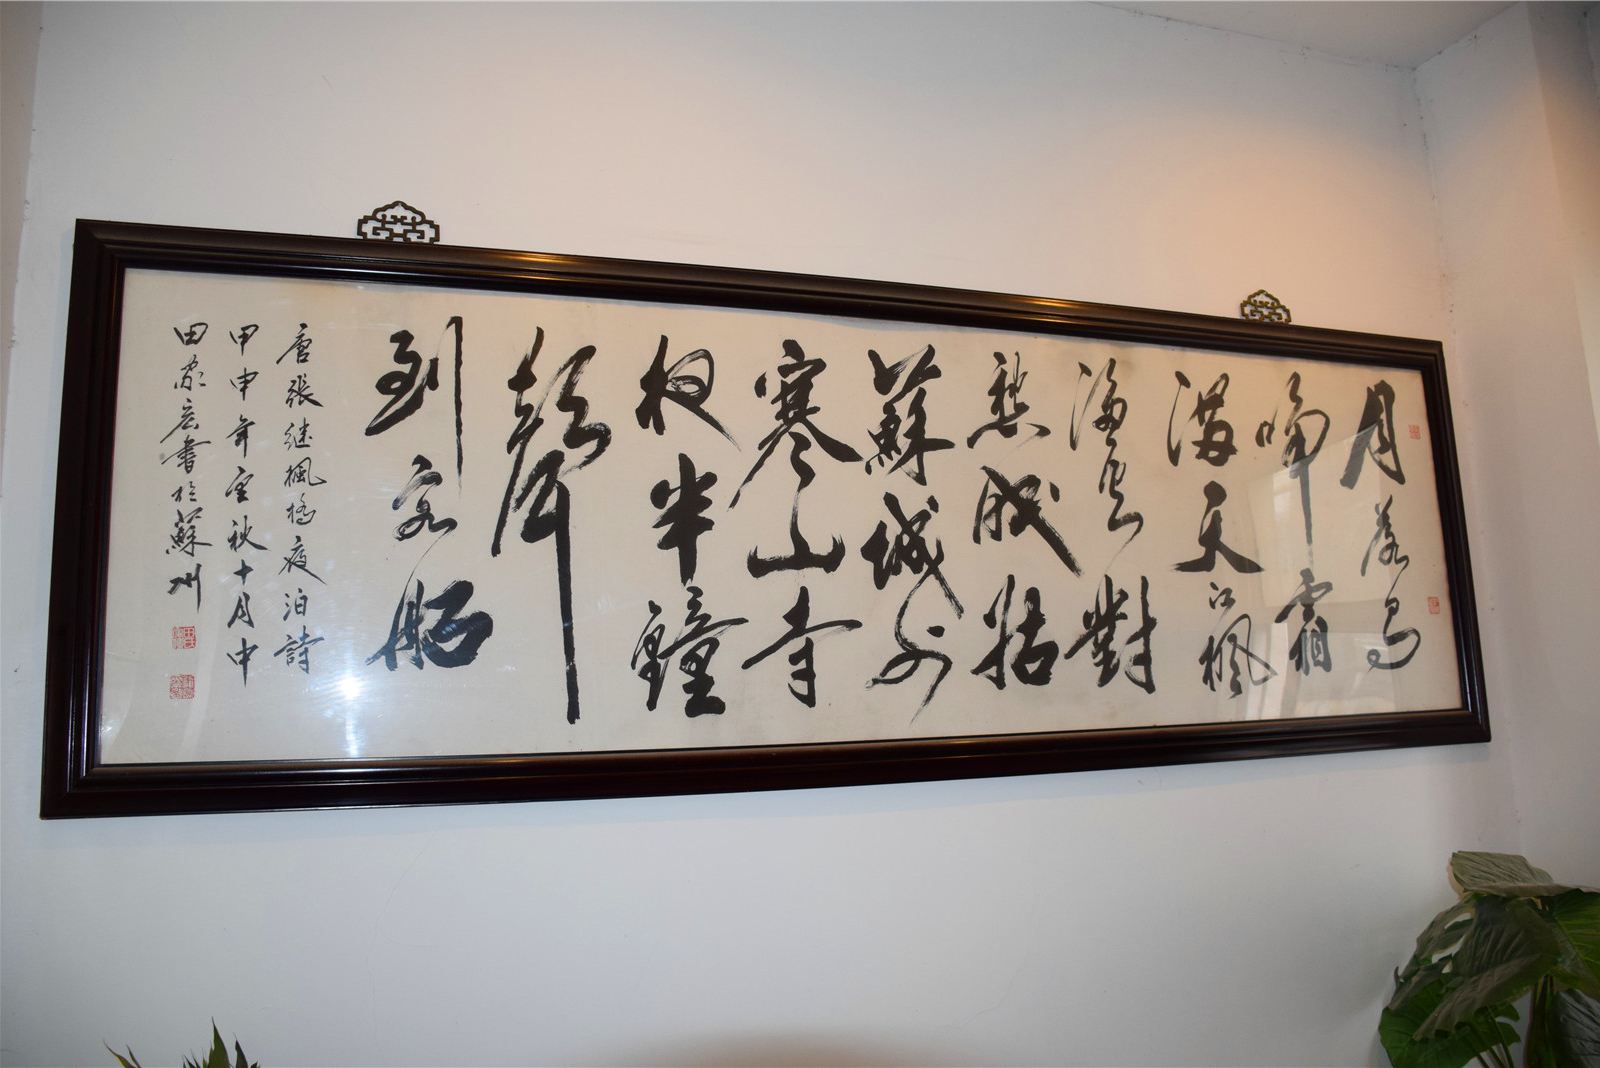 月落烏
啼霜
滿天江楓
漁火對
愁眠姑
蘇城外
寒山寺
夜半鐘
聲
到客船
唐張继楓橋夜泊詩
甲申年金秋十月中
田家宏書於蘇州